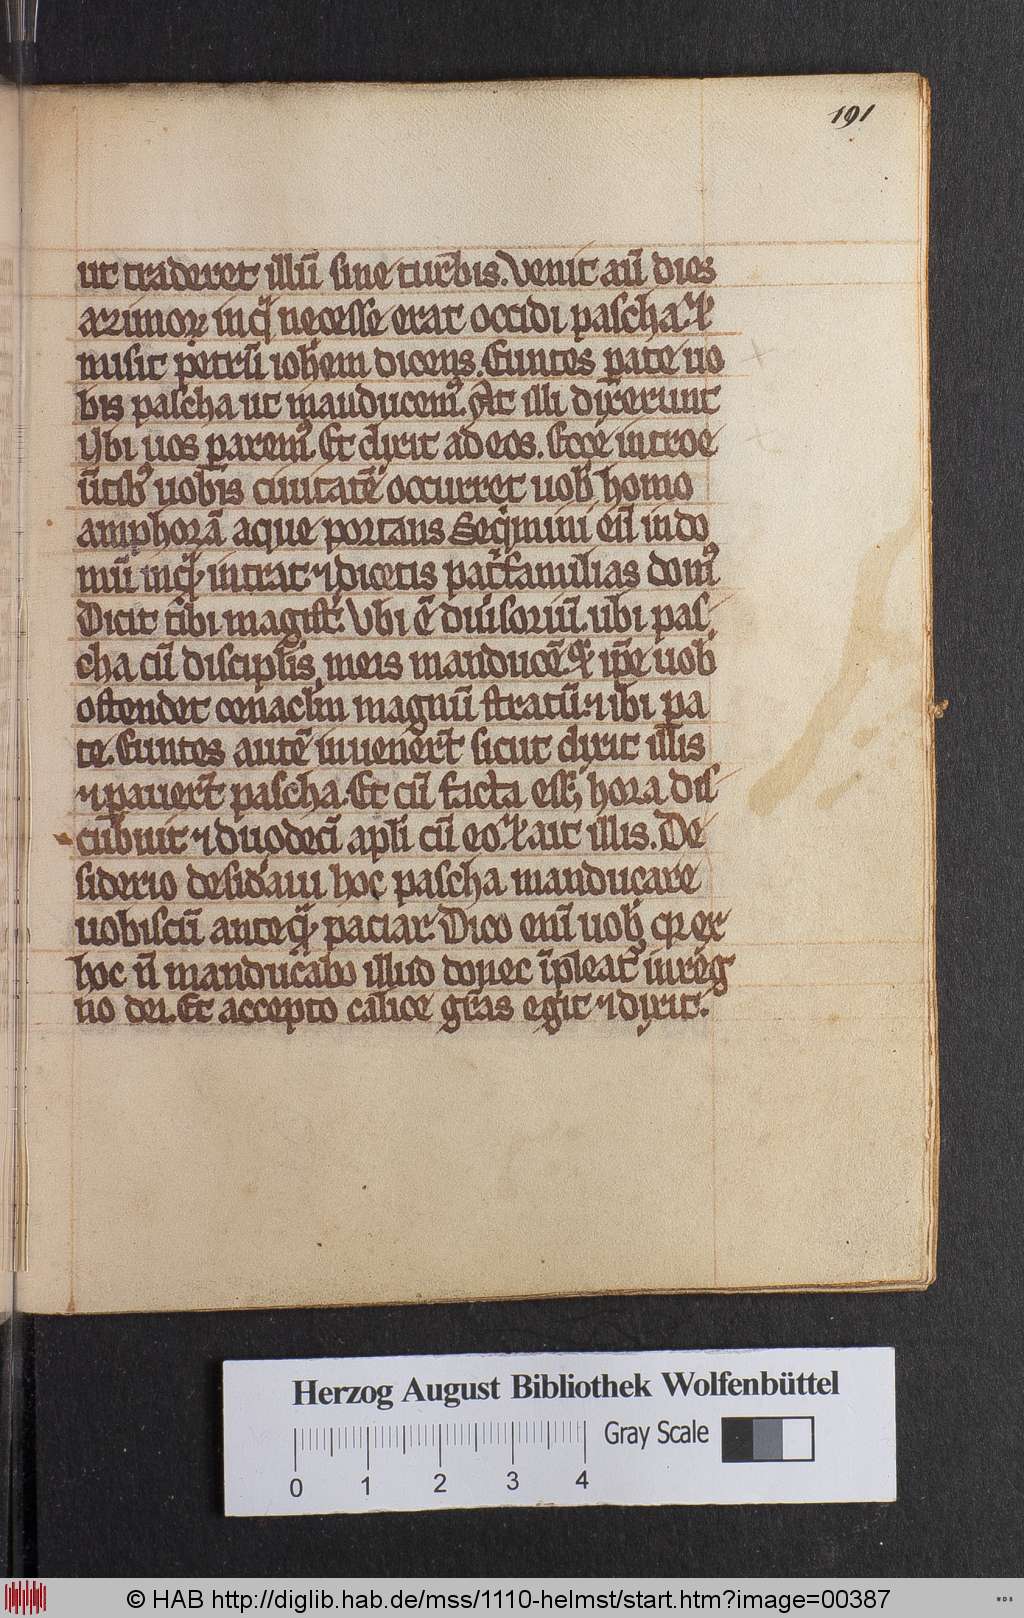 191
ut traderet illū sine turbis. Venit aū dies
azimoꝝ in q̄ necesse erat occidi pascha. ⁊
misit petrū ⁊ ioh̄em dicens. Euntes ꝑate uo
bis pascha ut manducemꝰ. At illi dixerunt
Vbi uis paremꝰ. Et dixit ad eos. Ecce introe
ūtibꝰ uobis ciuitatē occurret uob̄ homo
amphorā aque portans Seq̄mini eū in do
mū in q̄ intrat. ⁊ dicetis patrifamilias domꝰ
Dicit tibi magist̄. Vbi ē diuisoriū. ubi pas
cha cū discipl̄is meis manducē. ⁊ ip̄e uob̄
ostendet cenacl̄m magnū stratū. ⁊ ibi pa
te. Euntes autē inuener̄t sicut dixit illis
⁊ ꝑauer̄t pascha. Et cū facta ess; hora dis
cubuit ⁊ duodecī apl̄i cū eo. ⁊ ait illis. De
siderio desid̓aui hoc pascha manducare
uobiscū anteq̄ patiar. Dico enī uob̄ qꝛ ex
hoc n̄ manducabo illud donec īpleatᷣ in reg
no dei. Et accepto calice gr̄as egit ⁊ dixit.
Herzog August Bibliothek Wolfenbüttel
Gray Scale
0 1 2 3 4
© HAB http://diglib.hab.de/mss/1110-helmst/start.htm?image=00387